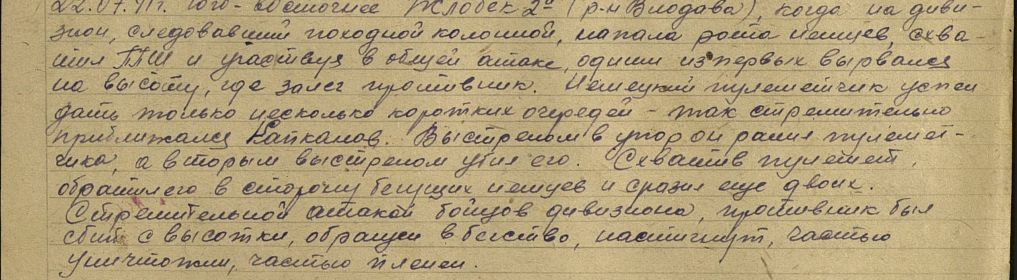 22.07.44г. юго-восточнее Жлобек 2й (р-н Влодава), когда на диви-
зион, следовавший походной колонной, напала рота немцев, схва-
тил ППШ и участвуя в общей атаке, одним из первых вырвался
на высоту, где залег противник. Немецкий пулеметчик успел
дать только несколько коротких очередей - так стремительно
приближался Капканов. Выстрелом в упор он ранил пулемет-
чика, а вторым выстрелом убил его. Схватив пулемет,
обратил его в сторону бегущих немцев и сразил еще двоих.
Стремительной атакой бойцов дивизиона, противник был
сбит с высотки, обращен в бегство, настигнут, частью
уничтожен, частью пленен.